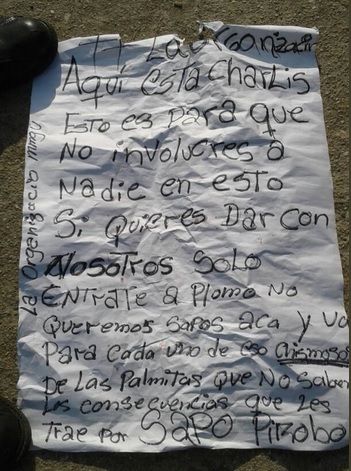 La Organizacion
Aquí esta CharLis
Esto es para que
No involucres a
Nadie en esto
Si Quieres Dar con
Nosotros Solo
Entrate a Plomo No
Queremos sapos aca y va
Para cada uno de eso chismosos
De Las Palmitas que No saben
Las consecuencias que Les
Trae por SAPO Pirobo
La Organizacio